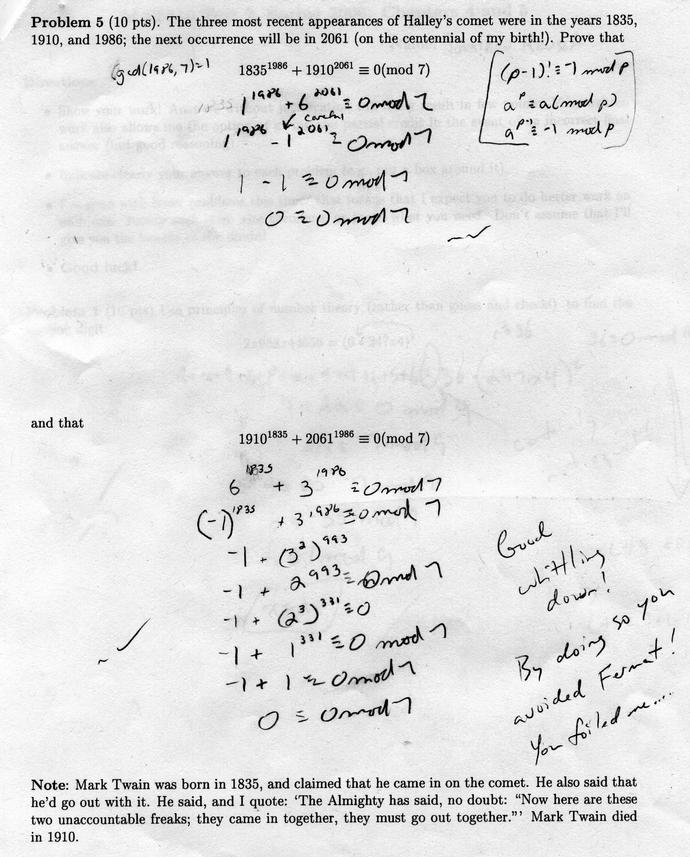 Problem 5 (10 pts). The three most recent appearances of Halley's comet were in the years 1835,
1910, and 1986; the next occurrence will be in 2061 (on the centennial of my birth!). Prove that
(gcd(1986,7)=1
1835^1986 + 1910^2061 ≡ 0(mod 7)
(p-1)! ≡ -1 mod p
a^p ≡ a(mod p)
a^p-1 ≡ -1 mod p
1^1986 + 6^2061 ≡ 0 mod 7
1^1986 - 1^2061 ≡ 0 mod 7
1 - 1 ≡ 0 mod 7
0 ≡ 0 mod 7
and that
1910^1835 + 2061^1986 ≡ 0(mod 7)
6^1835 + 3^1986 ≡ 0 mod 7
(-1)^1835 + 3^1986 ≡ 0 mod 7
-1 + (3^2)^993
-1 + 2^993 ≡ 0 mod 7
-1 + (2^3)^331 ≡ 0
-1 + 1^331 ≡ 0 mod 7
-1 + 1 ≡ 0 mod 7
0 ≡ 0 mod 7
Good
whittling
down!
By doing so you
avoided Fermat!
You foiled me....
Note: Mark Twain was born in 1835, and claimed that he came in on the comet. He also said that
he'd go out with it. He said, and I quote: 'The Almighty has said, no doubt: "Now here are these
two unaccountable freaks; they came in together, they must go out together."' Mark Twain died
in 1910.